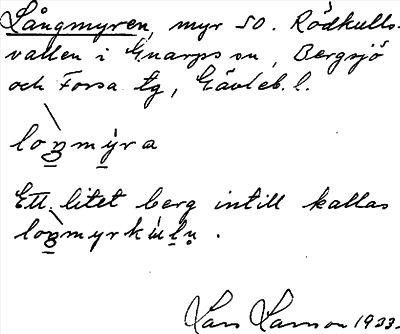 Långmyren, myr SO. Rödkulls-
vallen i Gnarps sn, Bergsjö
och Forsa tg, Gävleb. l.
loŋmýra
Ett litet berg intill kallas
loŋmyrkúlu.
Lars Larsson 1933.